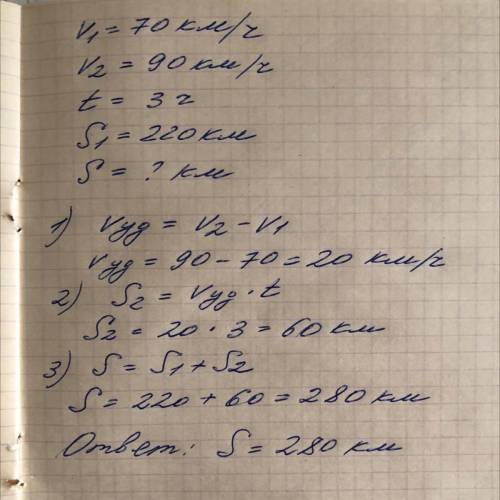 V₁ = 70 км/ч
V₂ = 90 км/ч
t = 3 ч
S₁ = 220 км
S = ? км
1) Vуд = V₂ - V₁
Vуд = 90 - 70 = 20 км/ч
2) S₂ = Vуд · t
S₂ = 20 · 3 = 60 км
3) S = S₁ + S₂
S = 220 + 60 = 280 км
Ответ: S = 280 км